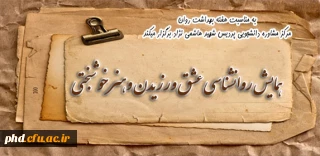 به مناسبت هفته بهداشت روان
مرکز مشاوره دانشجویی پردیس شهید هاشمی نژاد برگزار میکند
همایش روانشناسی عشق ورزیدن و هنر خوشبختی
phd.cfu.ac.ir